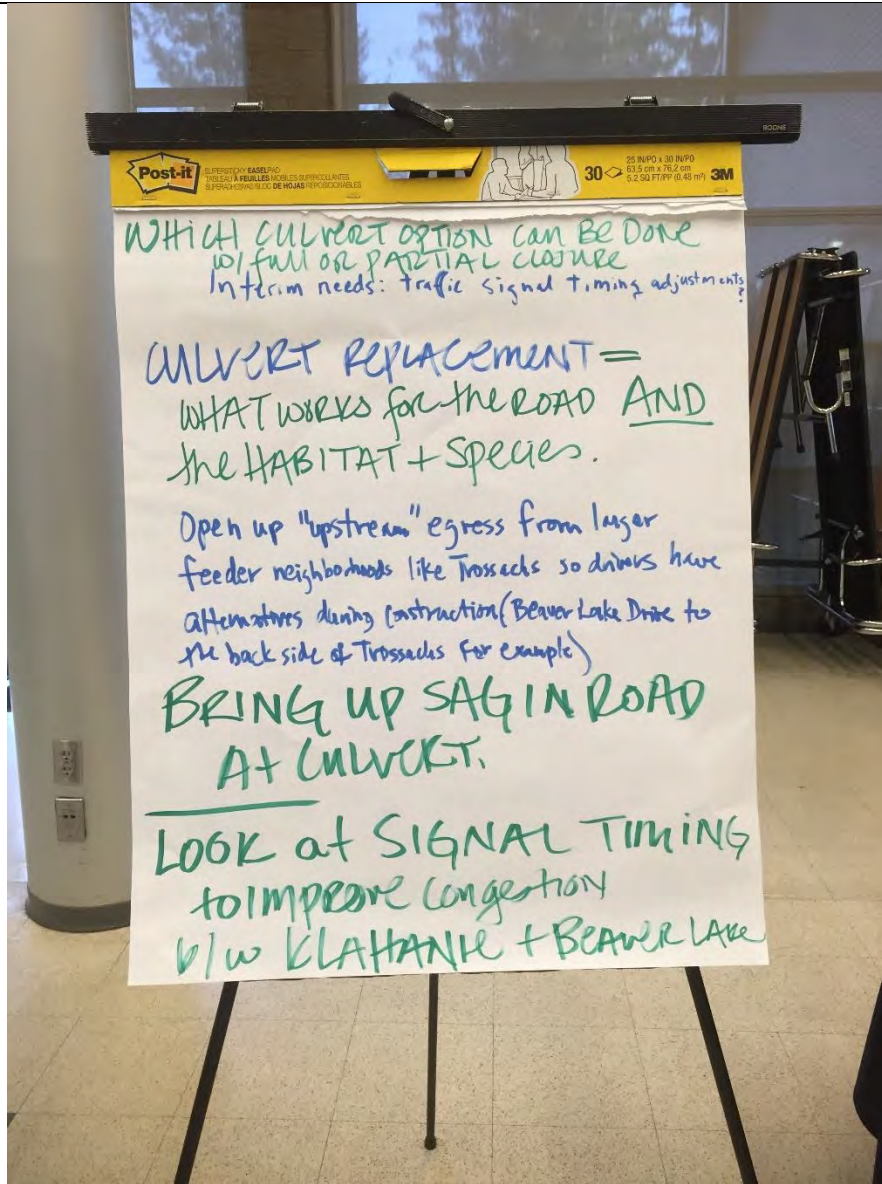 BOONE
Post-it
SUPERSTICKY EASELPAD
TABLEAU À FEUILLES MOBILES SUPERCOLLANTES
SUPERADHESIVAS/BLOC DE HOJAS REPOSICIONABLES
30
25 IN/PO x 30 IN/PO
63,5 cm x 76,2 cm
5.2 SQ FT/PP (0.48 m²)
3M
WHICH CULVERT OPTION CAN BE DONE
w/ full OR PARTIAL CLOSURE
Interim needs: traffic signal timing adjustments?
CULVERT REPLACEMENT =
WHAT WORKS for the ROAD AND
the HABITAT + Species.
Open up "upstream" egress from larger
feeder neighborhoods like Trossachs so drivers have
alternatives during construction (Beaver Lake Drive to
the back side of Trossachs for example)
BRING UP SAG IN ROAD
At CULVERT.
LOOK at SIGNAL TIMING
to IMPROVE congestion
b/w KLAHANIE + BEAVER LAKE